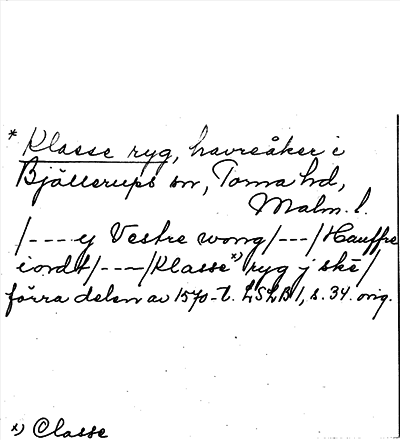 * Klasse ryg, havreåker i
Bjällerups sn, Torna hd,
Malm. l.
/----y Vestre wong/---/Hauffre
iordt/----/Klasse x) ryg j skè/
förra delen av 1570-t. LSLB 1, s. 34. orig.
x) Classe